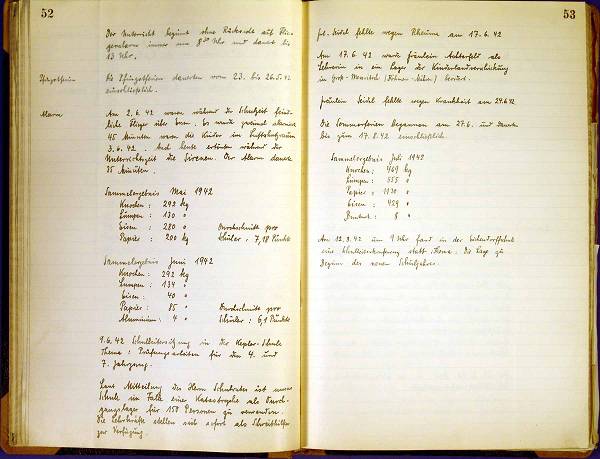 52
Der Unterricht beginnt ohne Rücksicht auf Flie-
geralarm immer um 8 Uhr und dauert bis
13 Uhr.
Pfingstferien
Die Pfingstferien dauerten vom 23. bis 26.5.42
einschließlich.
Alarm
Am 2.6.42 waren während der Schulzeit feind-
liche Flieger über Es wurde zweimal alarmiert
45 Minuten waren die Kinder im Luftschutzraum
3.6.42. Auch heute ertönten während der
Unterrichtszeit die Sirenen. Der Alarm dauerte
25 Minuten.
Sammelergebnis Mai 1942
Knochen: 292 kg
Lumpen: 130 "
Eisen: 280 " Durchschnitt pro
Papier: 200 kg Schüler: 7,18 Punkte
Sammelergebnis Juni 1942
Knochen: 292 kg
Lumpen: 134 "
Eisen: 40 "
Papier: 85 " Durchschnitt pro
Aluminium: 4 " Schüler: 6,1 Punkte
9.6.42 Schulleitersitzung in der Kepler-Schule
Thema: Prüfungsarbeiten für den 4. und
7. Jahrgang.
Laut Mitteilung des Herrn Schulrates ist unsere
Schule im Falle einer Katastrophe als Durch-
gangslager für 150 Personen zu verwenden.
Die Lehrkräfte stellen sich sofort als Schreibhilfen
zur Verfügung.
53
Frl. Seidel fehlte wegen Rheuma am 17.6.42
Am 17.6.42 wurde Fräulein als
Lehrerin in ein Lager der Kinderlandverschickung
in Groß- (Böhmen-Mähren) berufen.
Fräulein Seidel fehlte wegen Krankheit am 24.6.42
Die Sommerferien begannen am 27.6. und dauerten
bis zum 17.8.42 einschließlich.
Sammelergebnis Juli 1942
Knochen: 469 kg
Lumpen: 555 "
Papier: 1130 "
Eisen: 429 "
Buntmet.: 8 "
Am 12.8.42 um 9 Uhr fand in der Eichendorffschule
eine Schulleiterkonferenz statt. Thema: Die Lage zu
Beginn des neuen Schuljahres.